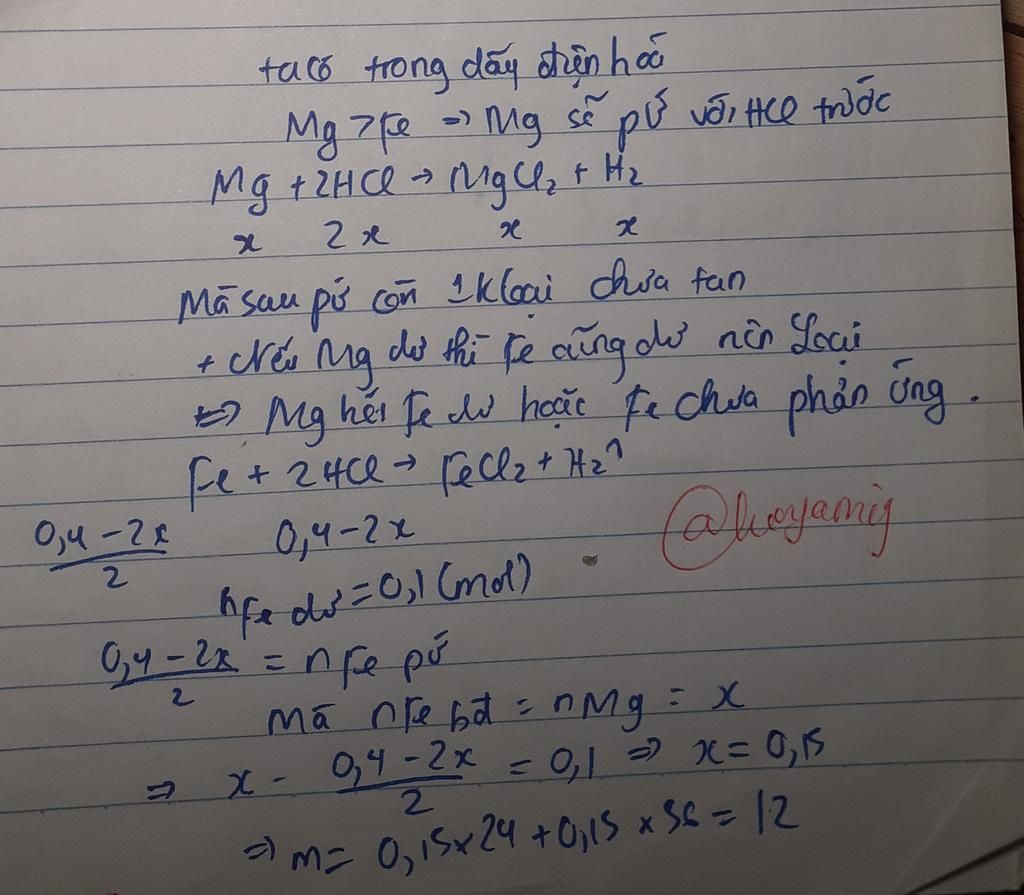 ta có trong dãy điện hoá
Mg > Fe => Mg sẽ pứ với HCl trước
Mg + 2HCl → MgCl₂ + H₂
x 2x x x
Mà sau pứ còn 1 kloại chưa tan
+ Nếu Mg dư thì Fe cũng dư nên Loại
<=> Mg hết Fe dư hoặc Fe chưa phản ứng.
Fe + 2HCl → FeCl₂ + H₂↑
(0,4-2x)/2 0,4-2x
@luoyamig
nFe dư = 0,1 (mol)
(0,4-2x)/2 = nFe pứ
Mà nFe bđ = nMg = x
=> x - (0,4-2x)/2 = 0,1 => x = 0,15
=> m = 0,15x24 + 0,15 x 56 = 12